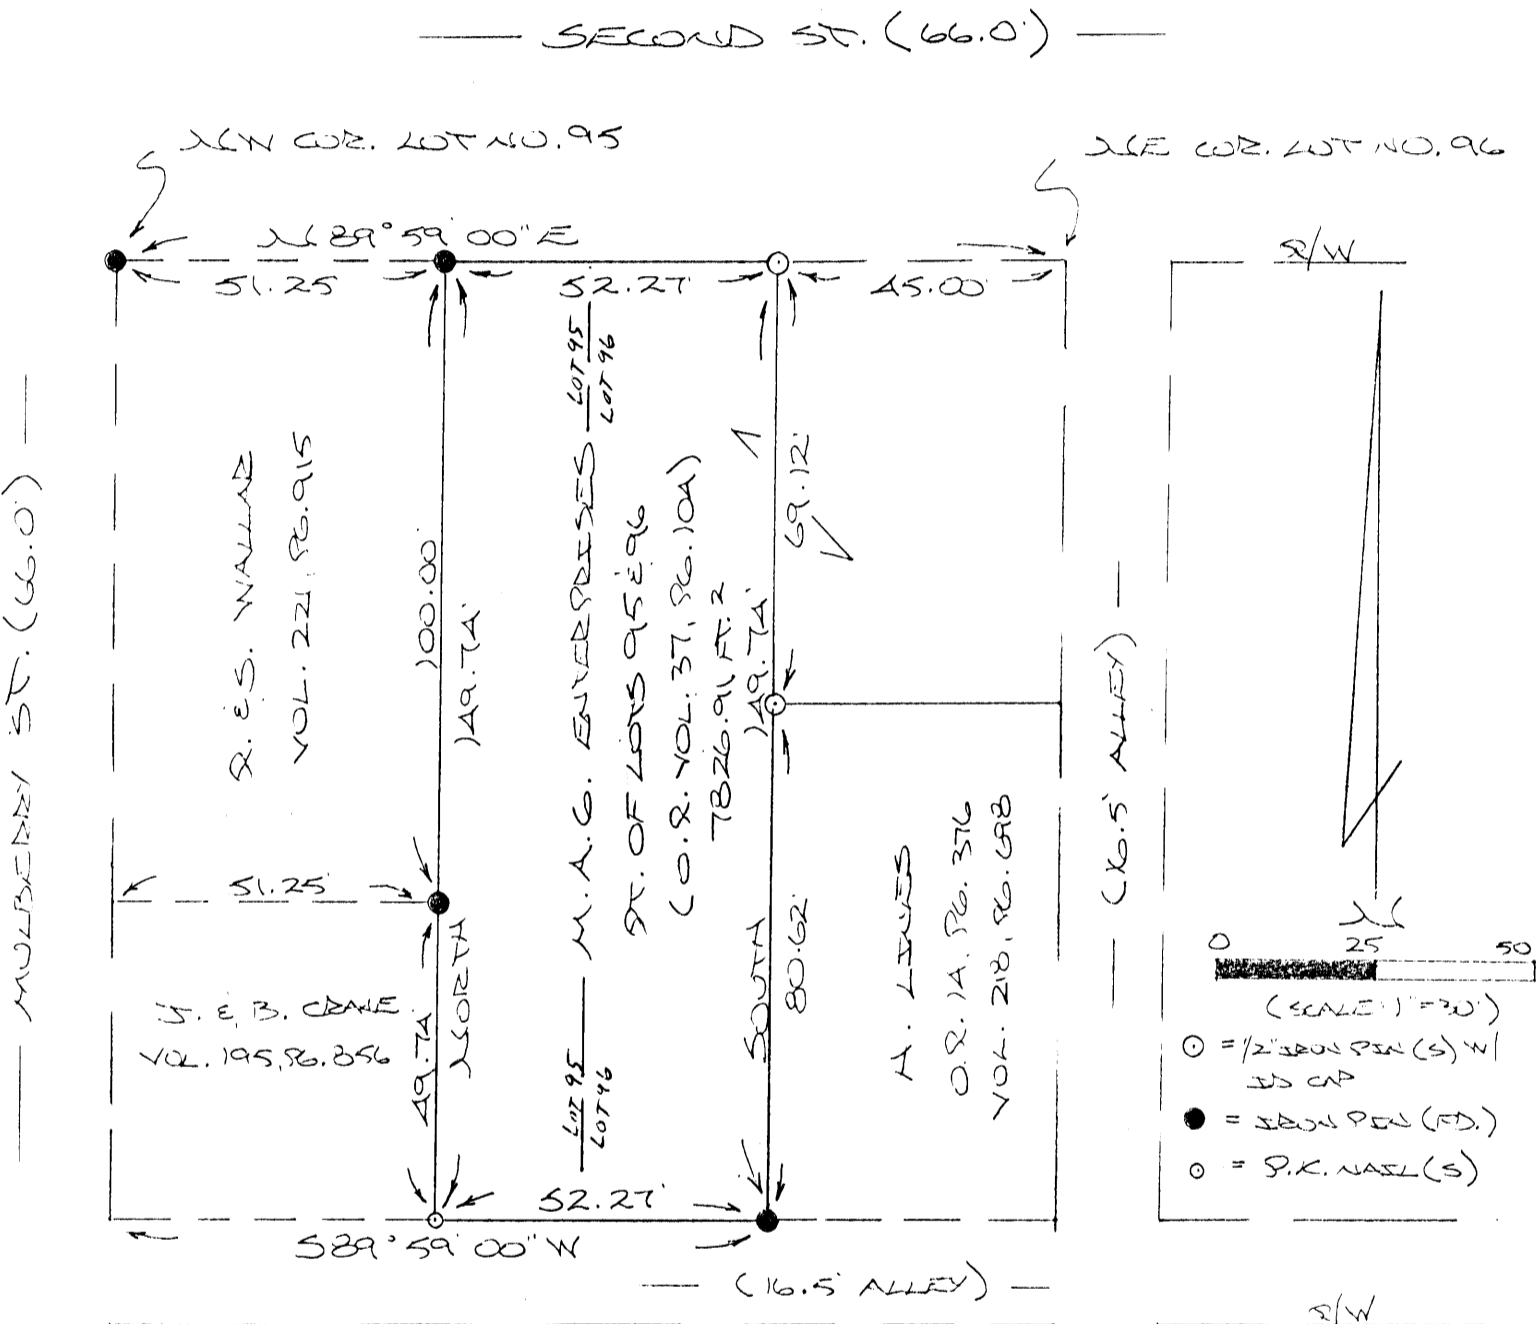 SECOND ST. (66.0')
NW COR. LOT NO. 95
NE COR. LOT NO. 96
N 89° 59' 00" E
R/W
51.25'
52.27'
45.00'
LOT 95
LOT 96
MULBERRY ST. (66.0')
R. & S. WALLAR
VOL. 221, PG. 915
100.00'
149.74'
M.A.G. ENTERPRISES
PT. OF LOTS 95 & 96
(O.R. VOL. 37, PG. 104)
7826.91 FT.2
149.74'
69.12'
(16.5' ALLEY)
51.25'
J. & B. CRANE
VOL. 195, PG. 856
49.74'
NORTH
LOT 95
LOT 96
SOUTH
80.62'
H. LINES
O.R. 14, PG. 376
VOL. 218, PG. 698
N
0 25 50
(SCALE: 1" = 30')
= 1/2" IRON PIN (S) W/
ID CAP
= IRON PIN (FD.)
= P.K. NAIL (S)
52.27'
S 89° 59' 00" W
(16.5' ALLEY)
R/W